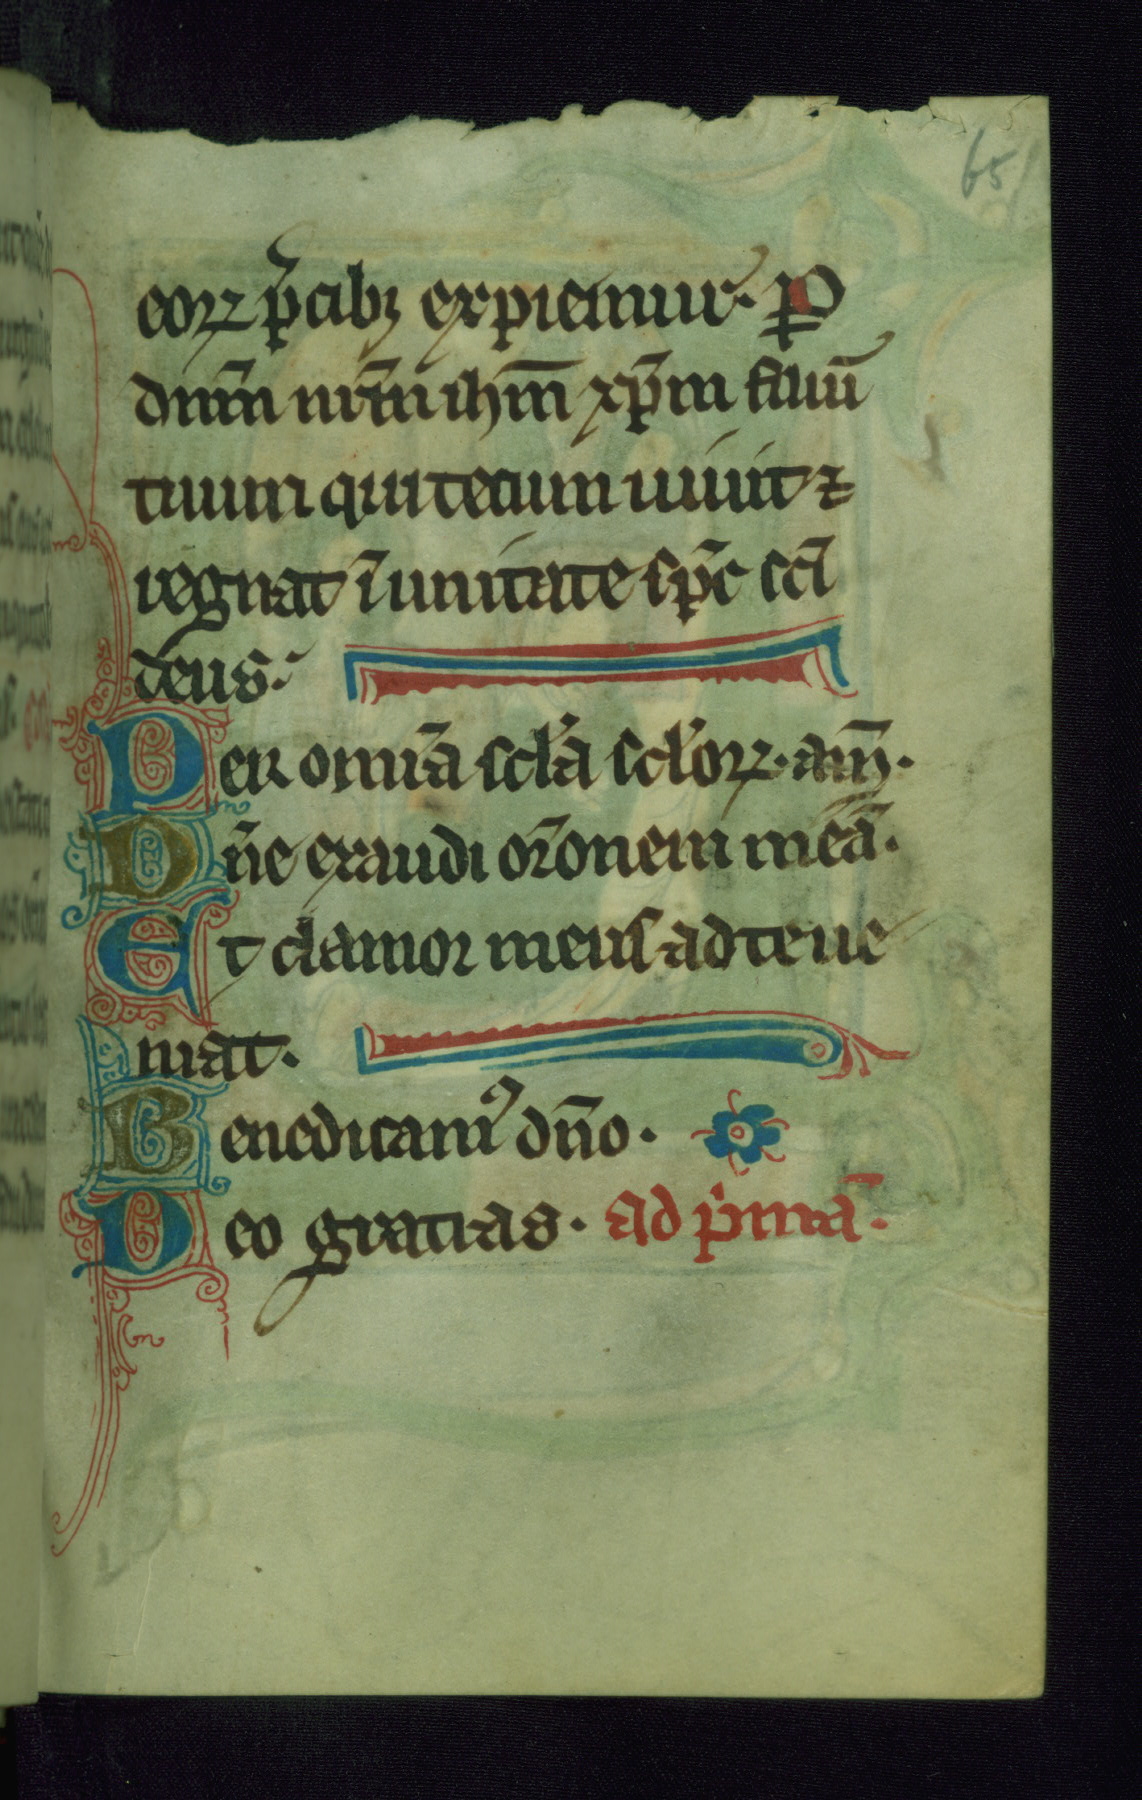 65
eoꝝ p̄cibꝫ expiemur. P
dnm̄ nr̄m ihm̄ xp̄m filiū
tuum qui tecum uiuit ⁊
regnat ī unitate sp̄c sc̄i
deus.
Per om̄ia scl̄a scl̄oꝝ. am̄.
Dn̄e exaudi or̄onem meā.
Et clamor meus ad te ue
niat.
Benedicamꝰ dn̄o.
Deo gratias. ad p̄mā.